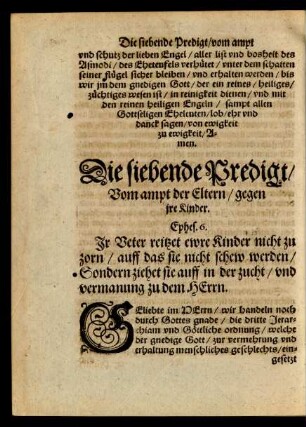 Die siebende Predigt/vom ampt
vnd schutz der lieben Engel/ aller list vnd bosheit des
Asmodi/ des Eheteufels verhütet/ vnter dem schatten
seiner flügel sicher bleiben/ vnd erhalten werden/ bis
wir jm dem gnedigen Gott/ der ein reines/ heiliges/
züchtiges wesen ist/ in reinigkeit dienen/ vnd mit
den reinen heiligen Engeln/ sampt allen
Gottseligen Eheleuten/ lob/ ehr vnd
danck sagen/ von ewigkeit
zu ewigkeit/ A-
men.
Die siebende Predigt/
Vom ampt der Eltern/ gegen
jre Kinder.
Ephes. 6.
Ir Veter reitzet ewre Kinder nicht zu
zorn/ auff das sie nicht schew werden/
Sondern ziehet sie auff in der zucht/ vnd
vermanung zu dem HErrn.
GEliebte im HErrn/ wir handeln noch
durch Gottes gnade/ die dritte Jerar-
chiam vnd Göttliche ordnung/ welche
der gnedige Gott/ zur vermehrung vnd
erhaltung menschliches geschlechts/ ein-
gesetzt